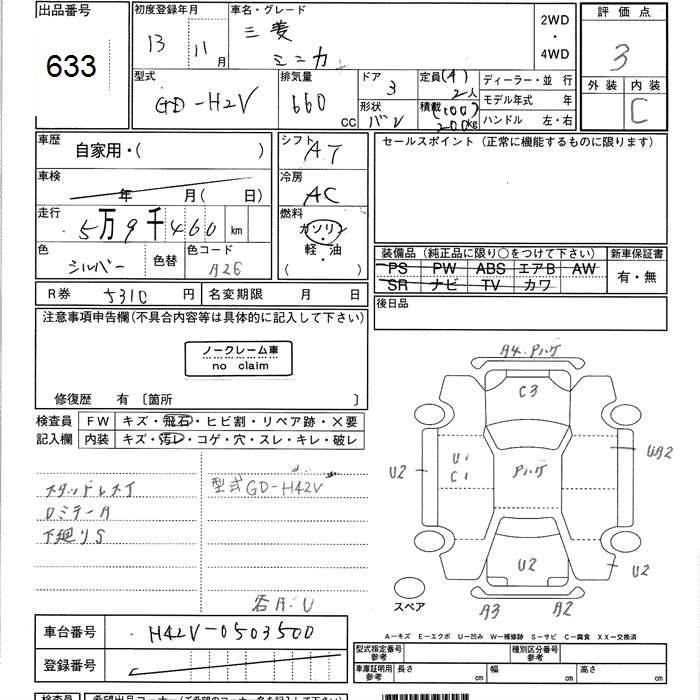 出品番号
633
初度登録年月
13 11月
車名・グレード
三菱
ミニカ
2WD
・
4WD
評価点
3
外装 内装
C
型式
GD-H2V
排気量
660 cc
ドア
3
形状
バン
定員(4)
2人
積載(100)
200kg
ディーラー・並行
モデル年式 年
ハンドル 左・右
車歴
自家用・( )
車検
年 月( 日)
走行
5万9千460km
色
シルバー
色替
色コード
A26
シフト
AT
冷房
AC
燃料
ガソリン
・
軽・油
( )
セールスポイント(正常に機能するものに限ります)
装備品(純正品に限り○をつけて下さい)
PS PW ABS エアB AW
SR ナビ TV カワ
新車保証書
有・無
R券 5310円
名変期限 月 日
後日品
注意事項申告欄(不具合内容等は具体的に記入して下さい)
ノークレーム車
no claim
修復歴 有〔箇所 〕
検査員
記入欄
FW キズ・飛石・ヒビ割・リペア跡・X要
内装 キズ・汚レ・コゲ・穴・スレ・キレ・破レ
スタッドレスT
ロミラーA
下廻りS
型式GD-H42V
各A・U
A4.ハゲ
C3
U1
C1
ハゲ
U2
UA2
U2
U2
A3
A2
スペア
車台番号
H42V-0503500
登録番号
A―キズ E―エクボ U―凹み W―補修跡 S―サビ C―腐食 XX―交換済
型式指定番号
参考
種別区分番号
参考
車庫証明用
参考
長さ cm
幅 cm
高さ cm
検査員
希望出品コーナー(ご希望のコーナー名を記入して下さい)